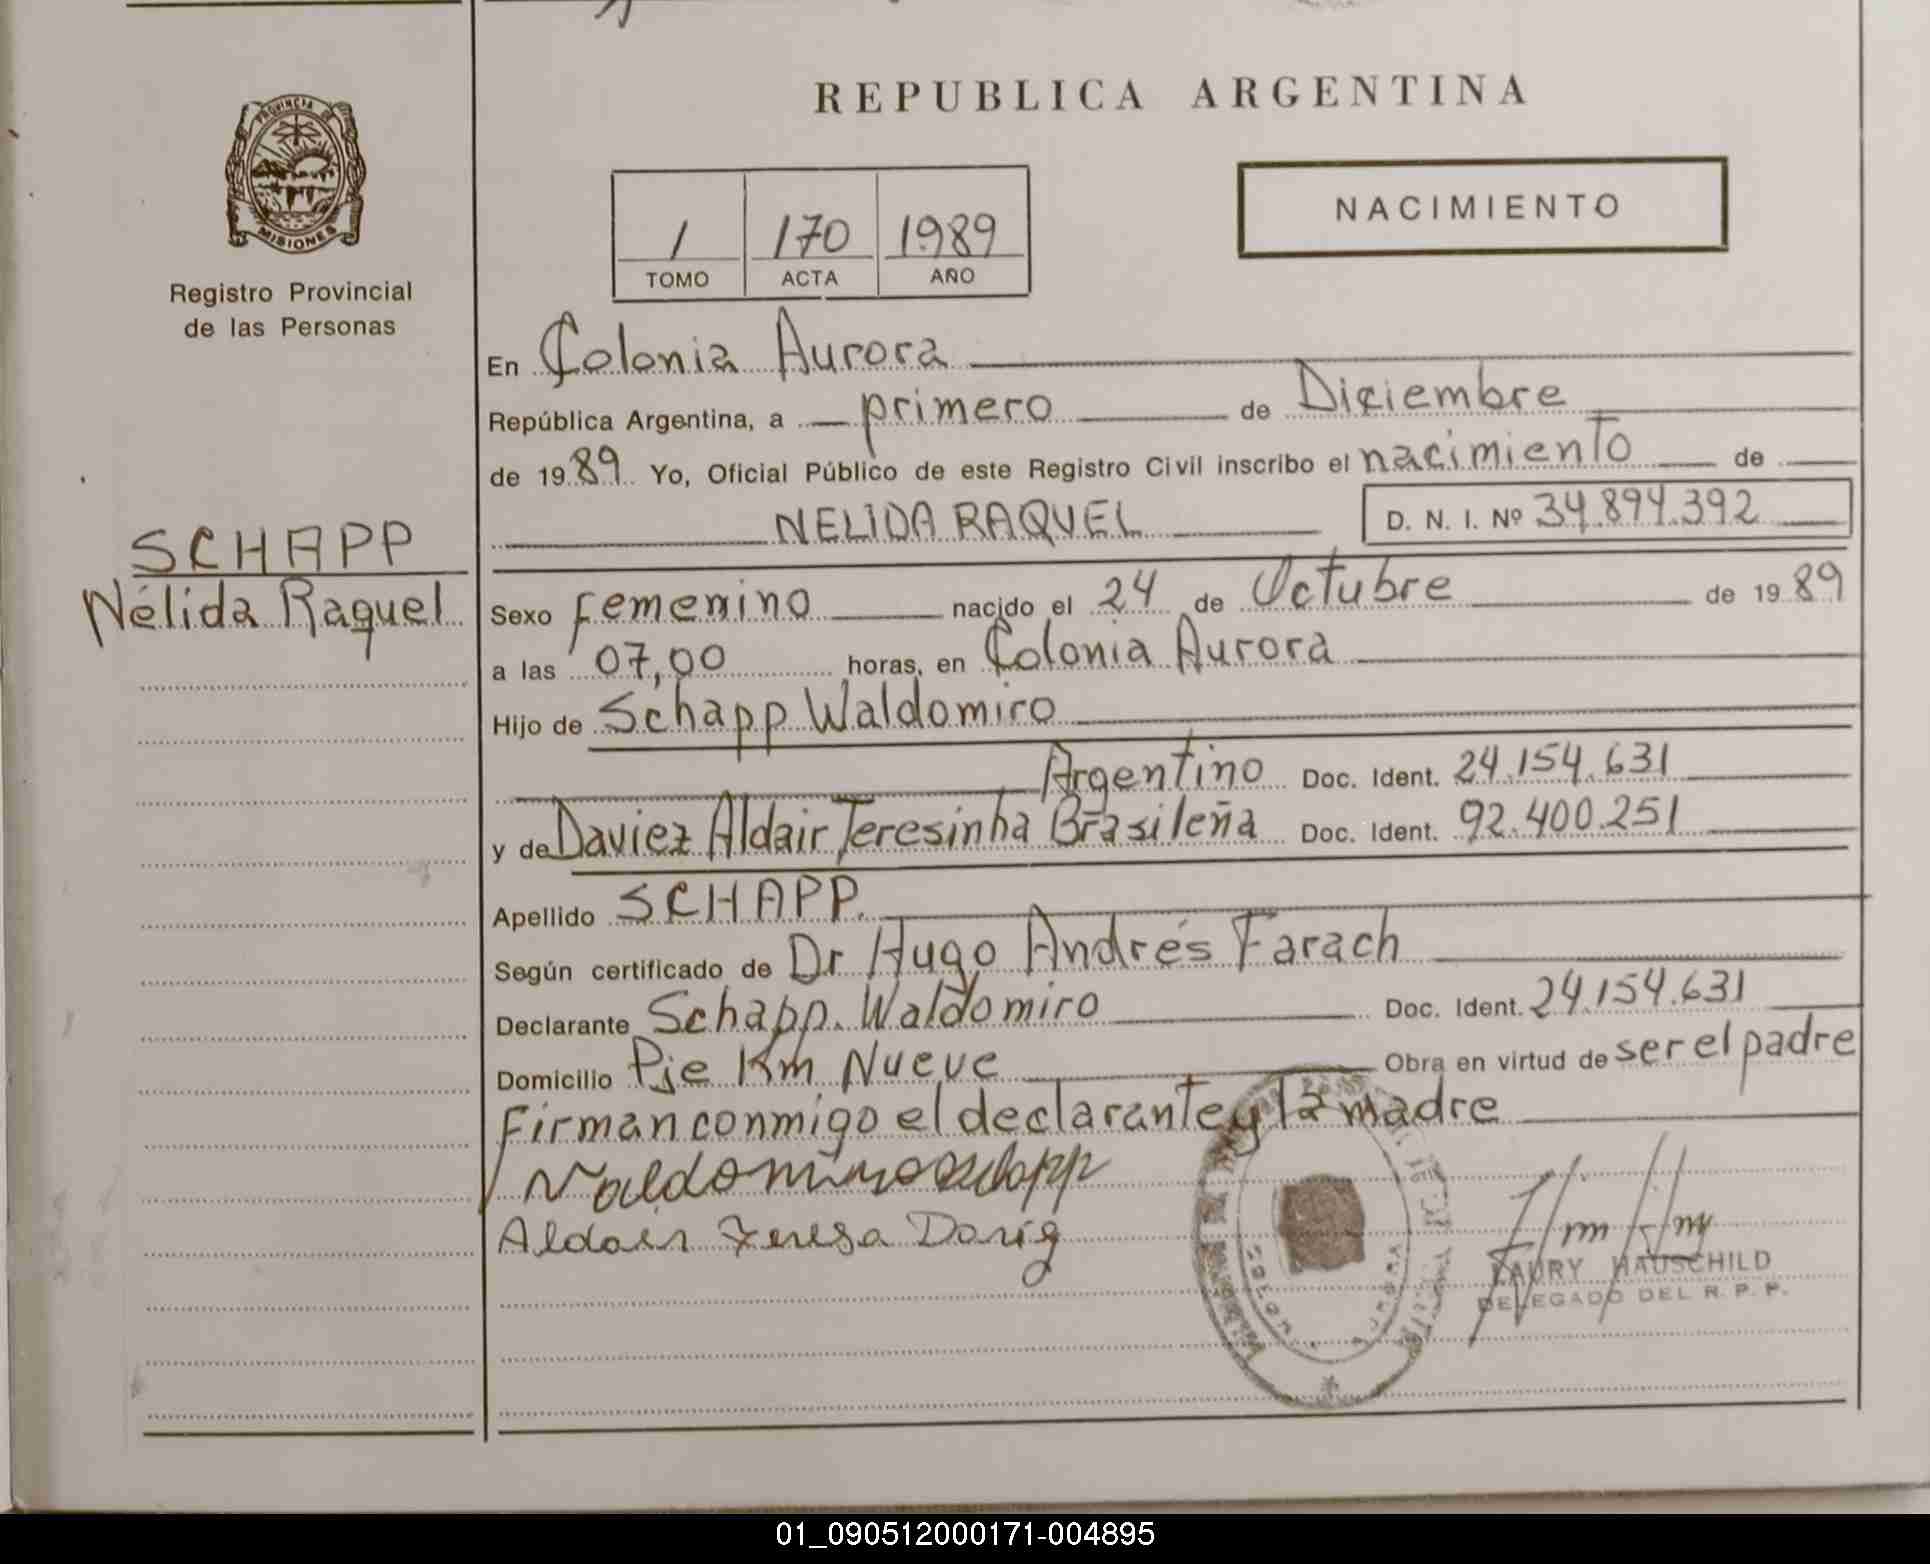 REPUBLICA ARGENTINA
PROVINCIA DE
MISIONES
Registro Provincial
de las Personas
NACIMIENTO
1 170 1989
TOMO ACTA AÑO
SCHAPP
Nélida Raquel
En Colonia Aurora
República Argentina, a primero de Diciembre
de 1989 Yo, Oficial Público de este Registro Civil inscribo el nacimiento de
NELIDA RAQUEL D. N. I. Nº 34.894.392
Sexo Femenino nacido el 24 de Octubre de 1989
a las 07,00 horas, en Colonia Aurora
Hijo de Schapp Waldomiro
Argentino Doc. Ident. 24.154.631
y de Daviez Aldair Teresinha Brasileña Doc. Ident. 92.400.251
Apellido SCHAPP.
Según certificado de Dr Hugo Andrés Farach
Declarante Schapp. Waldomiro Doc. Ident. 24.154.631
Domicilio Pje Km Nueve Obra en virtud de ser el padre
Firman conmigo el declarante y la madre
Valdomiro schapp
Aldair Teresa
COLONIA AURORA
LAURY HAUSCHILD
DELEGADO DEL R. P. P.
01_090512000171-004895